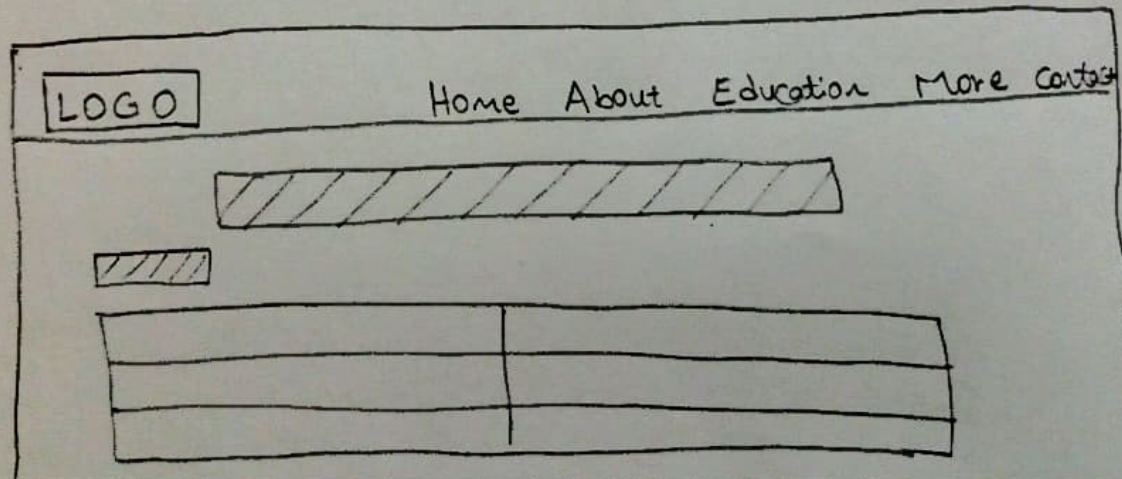 LOGO
Home About Education More Contact